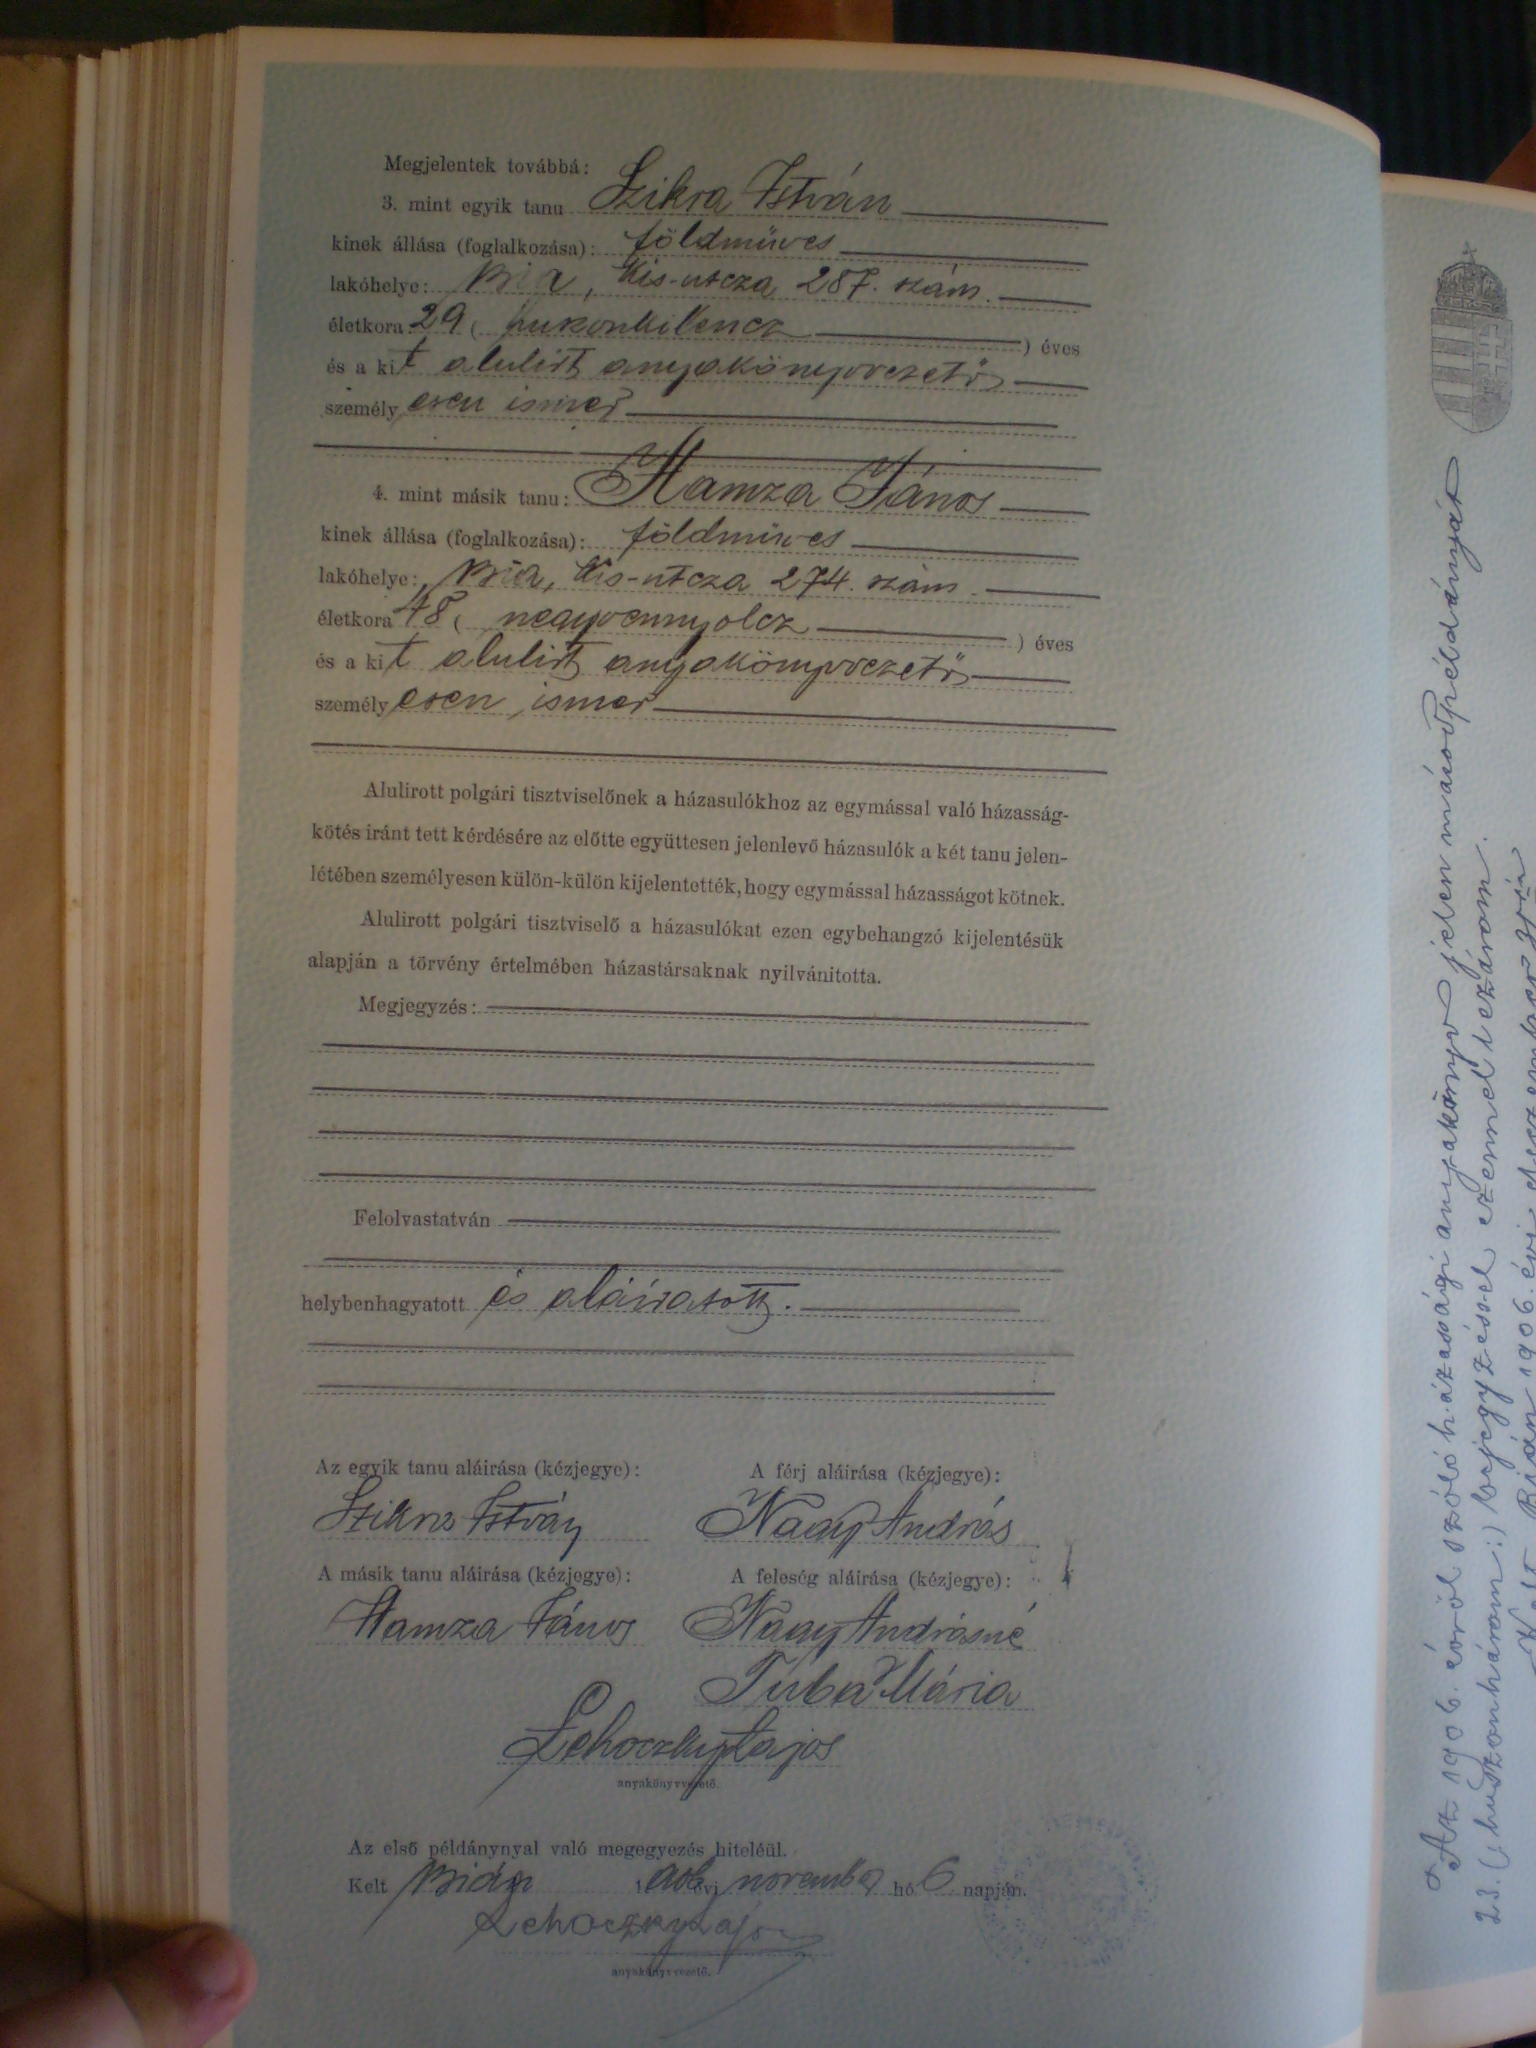 Megjelentek továbbá:
3. mint egyik tanu Szikra István
kinek állása (foglalkozása): földmüves
lakóhelye: Bia, Kis-utcza 287. szám.
életkora: 29 ( huszonkilencz ) éves
és a kit alulirt anyakönyvvezető
személyesen ismer
4. mint másik tanu: Hamza János
kinek állása (foglalkozása): földmüves
lakóhelye: Bia, Kis-utcza 274. szám.
életkora 48 ( negyvennyolcz ) éves
és a kit alulirt anyakönyvvezető
személyesen ismer
Alulirott polgári tisztviselőnek a házasulókhoz az egymással való házasság-
kötés iránt tett kérdésére az előtte együttesen jelenlevő házasulók a két tanu jelen-
létében személyesen külön-külön kijelentették, hogy egymással házasságot kötnek.
Alulirott polgári tisztviselő a házasulókat ezen egybehangzó kijelentésük
alapján a törvény értelmében házastársaknak nyilvánitotta.
Megjegyzés:
Felolvastatván
helybenhagyatott és aláiratott.
Az egyik tanu aláirása (kézjegye): A férj aláirása (kézjegye):
Szikra István Nagy András
A másik tanu aláirása (kézjegye): A feleség aláirása (kézjegye):
Hamza János Nagy Andrásné
Tuba Mária
Lehoczky Lajos
anyakönyvvezető.
Az első példánynyal való megegyezés hiteléül.
Kelt Bián 1906 évi november hó 6 napján.
Lehoczky Lajos
anyakönyvvezető.
Az 1906. évről szóló házassági anyakönyv jelen másodpéldányát
23. (: huszonhárom :) bejegyzéssel ezennel lezárom.
Kelt Bián 1906. évi deczember